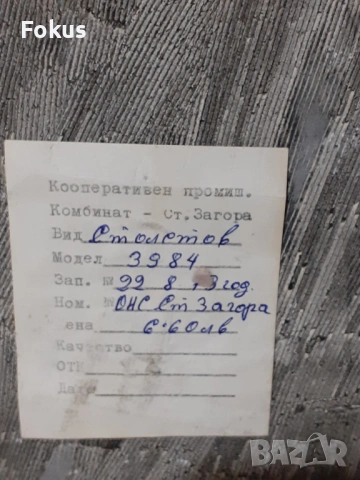 Fokus
Кооперативен промиш.
Комбинат - Ст.Загора
Вид Столетов
Модел 3984
Зап. № 22 8 год.
Ном. № ОНС Ст Загора
ена 6·60лв
Качество
ОТК
Дата
BAZAR